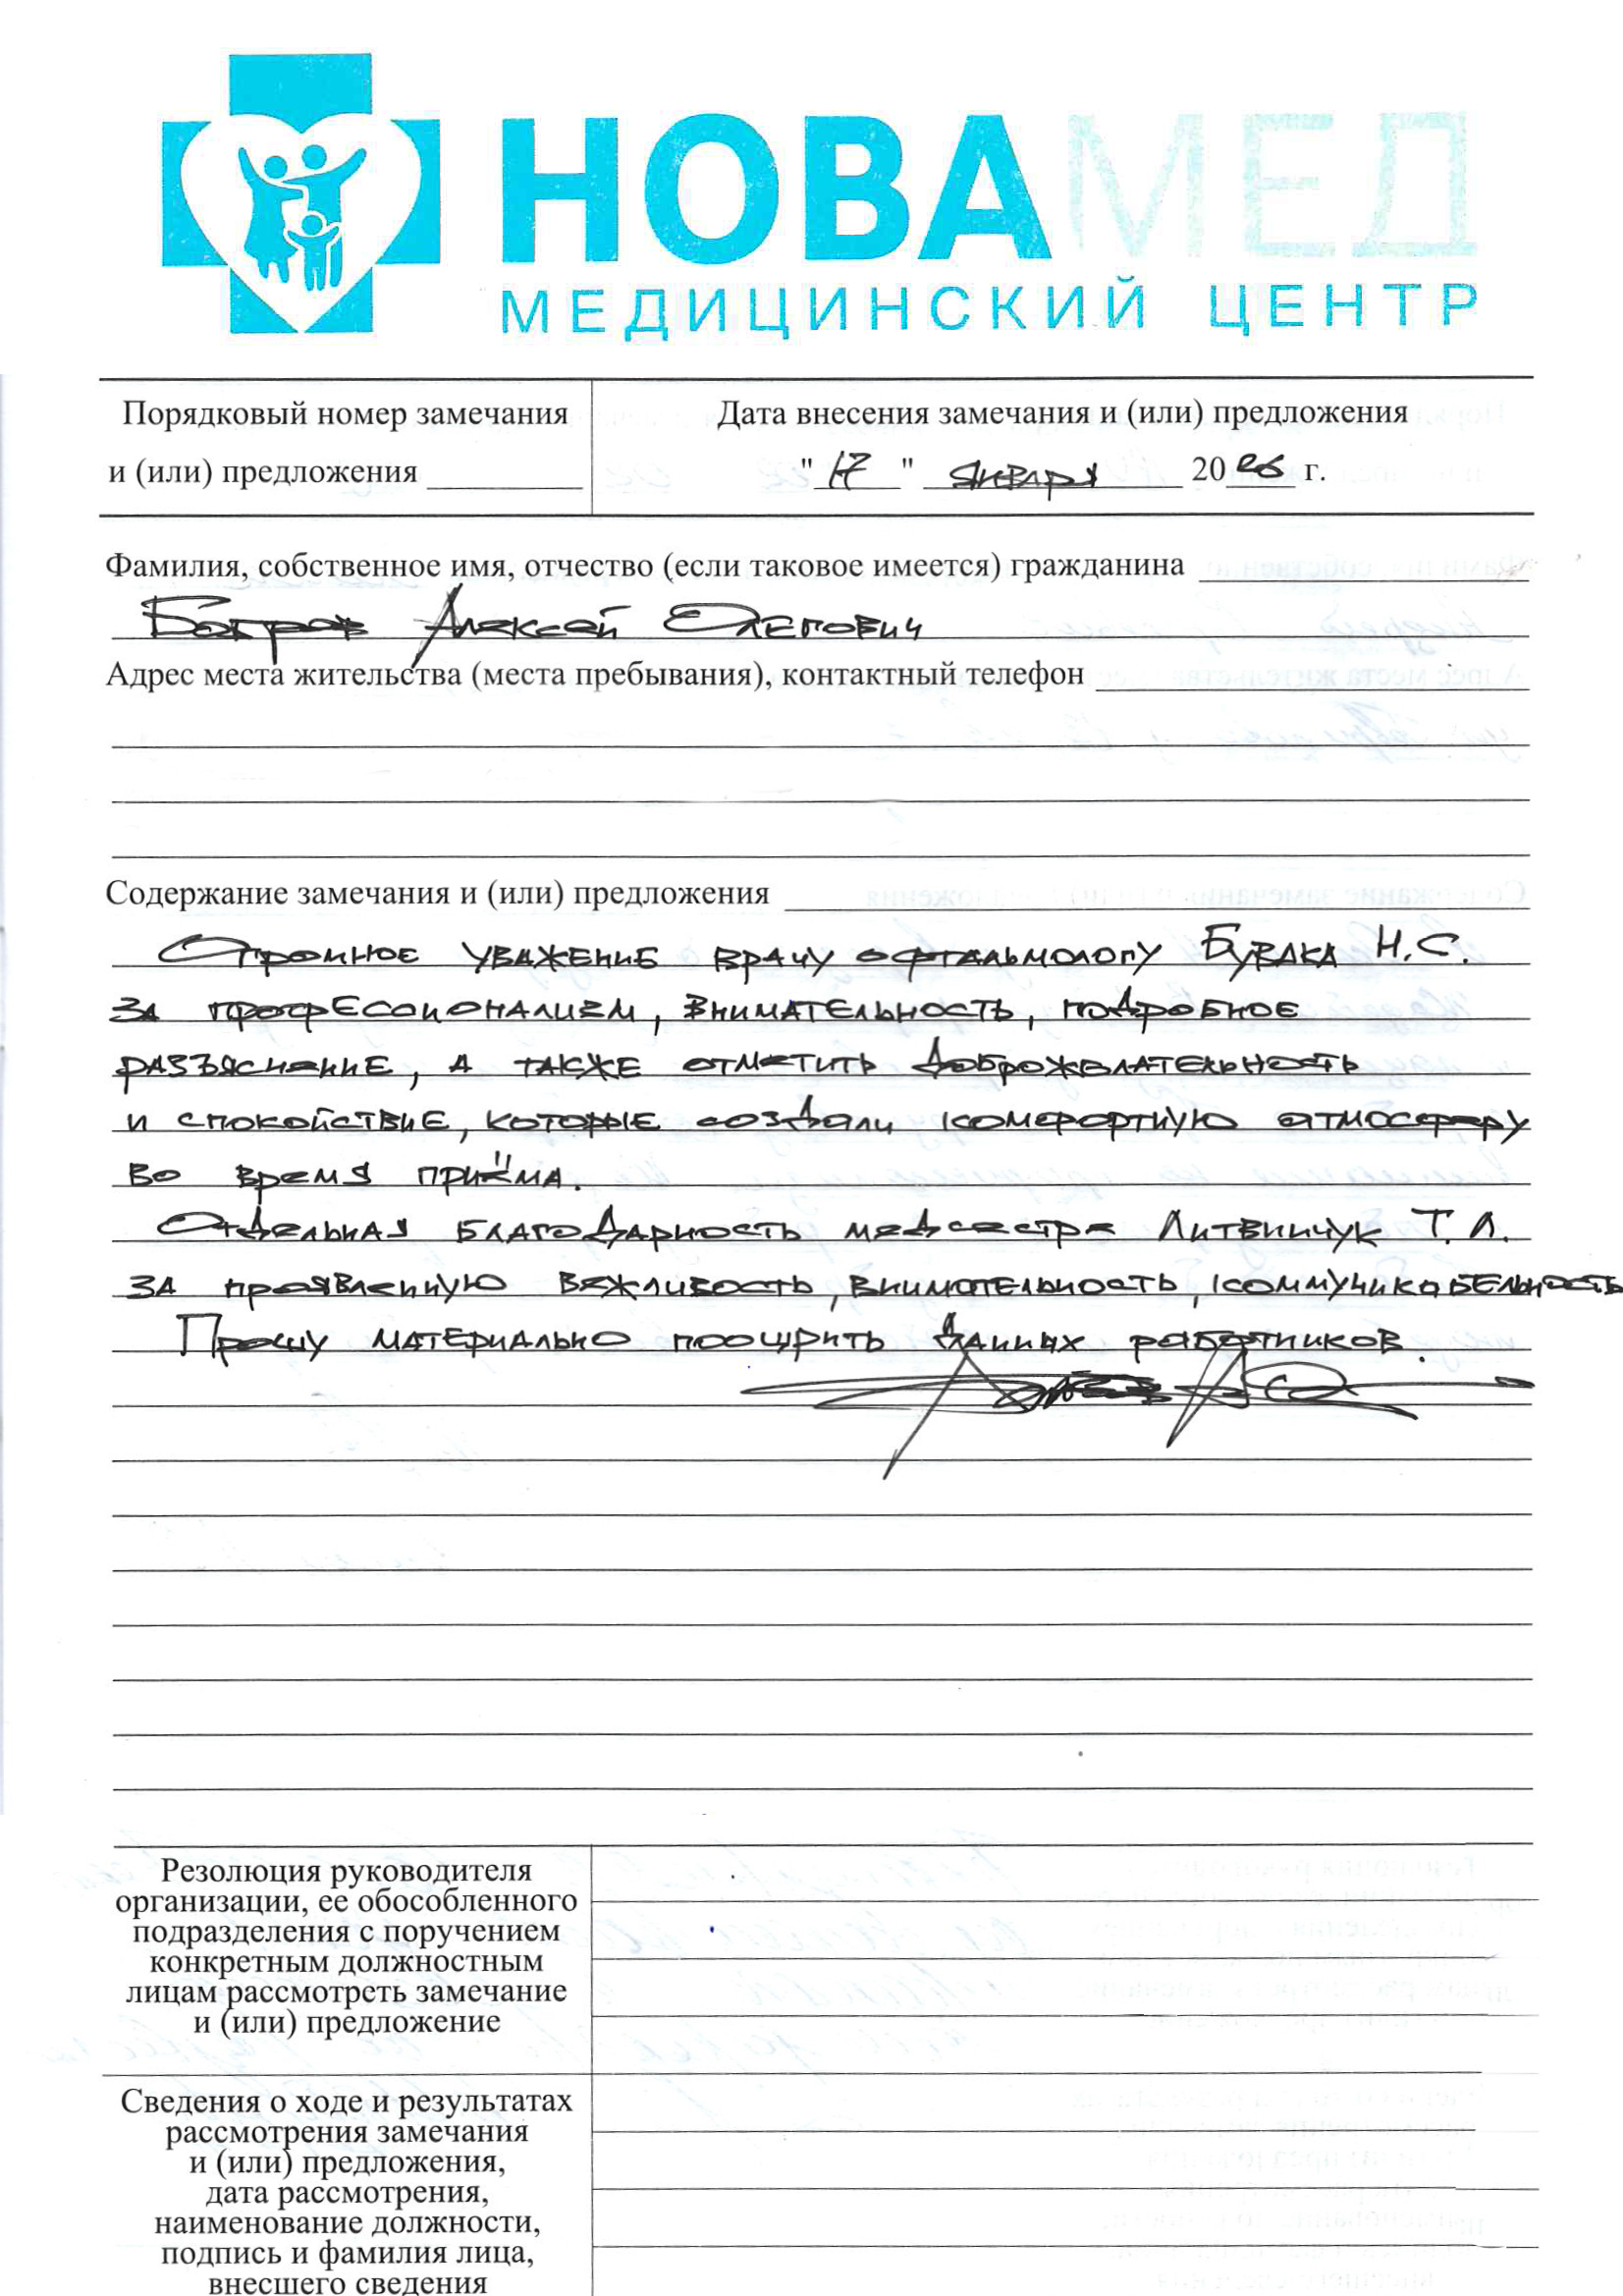 НОВАМЕД
МЕДИЦИНСКИЙ ЦЕНТР
Порядковый номер замечания
и (или) предложения
Дата внесения замечания и (или) предложения
"17" января 2026 г.
Фамилия, собственное имя, отчество (если таковое имеется) гражданина
Алексей Олегович
Адрес места жительства (места пребывания), контактный телефон
Содержание замечания и (или) предложения
Огромное уважение врачу офтальмологу Бувака Н.С.
за профессионализм, внимательность, подробное
разъяснение, а также отметить доброжелательность
и спокойствие, которые создали комфортную атмосферу
во время приёма.
Отдельная благодарность медсестре Литвинчук Т.Л.
за проявленную вежливость, внимательность, коммуникабельность
Прошу материально поощрить данных работников.
Резолюция руководителя
организации, ее обособленного
подразделения с поручением
конкретным должностным
лицам рассмотреть замечание
и (или) предложение
Сведения о ходе и результатах
рассмотрения замечания
и (или) предложения,
дата рассмотрения,
наименование должности,
подпись и фамилия лица,
внесшего сведения